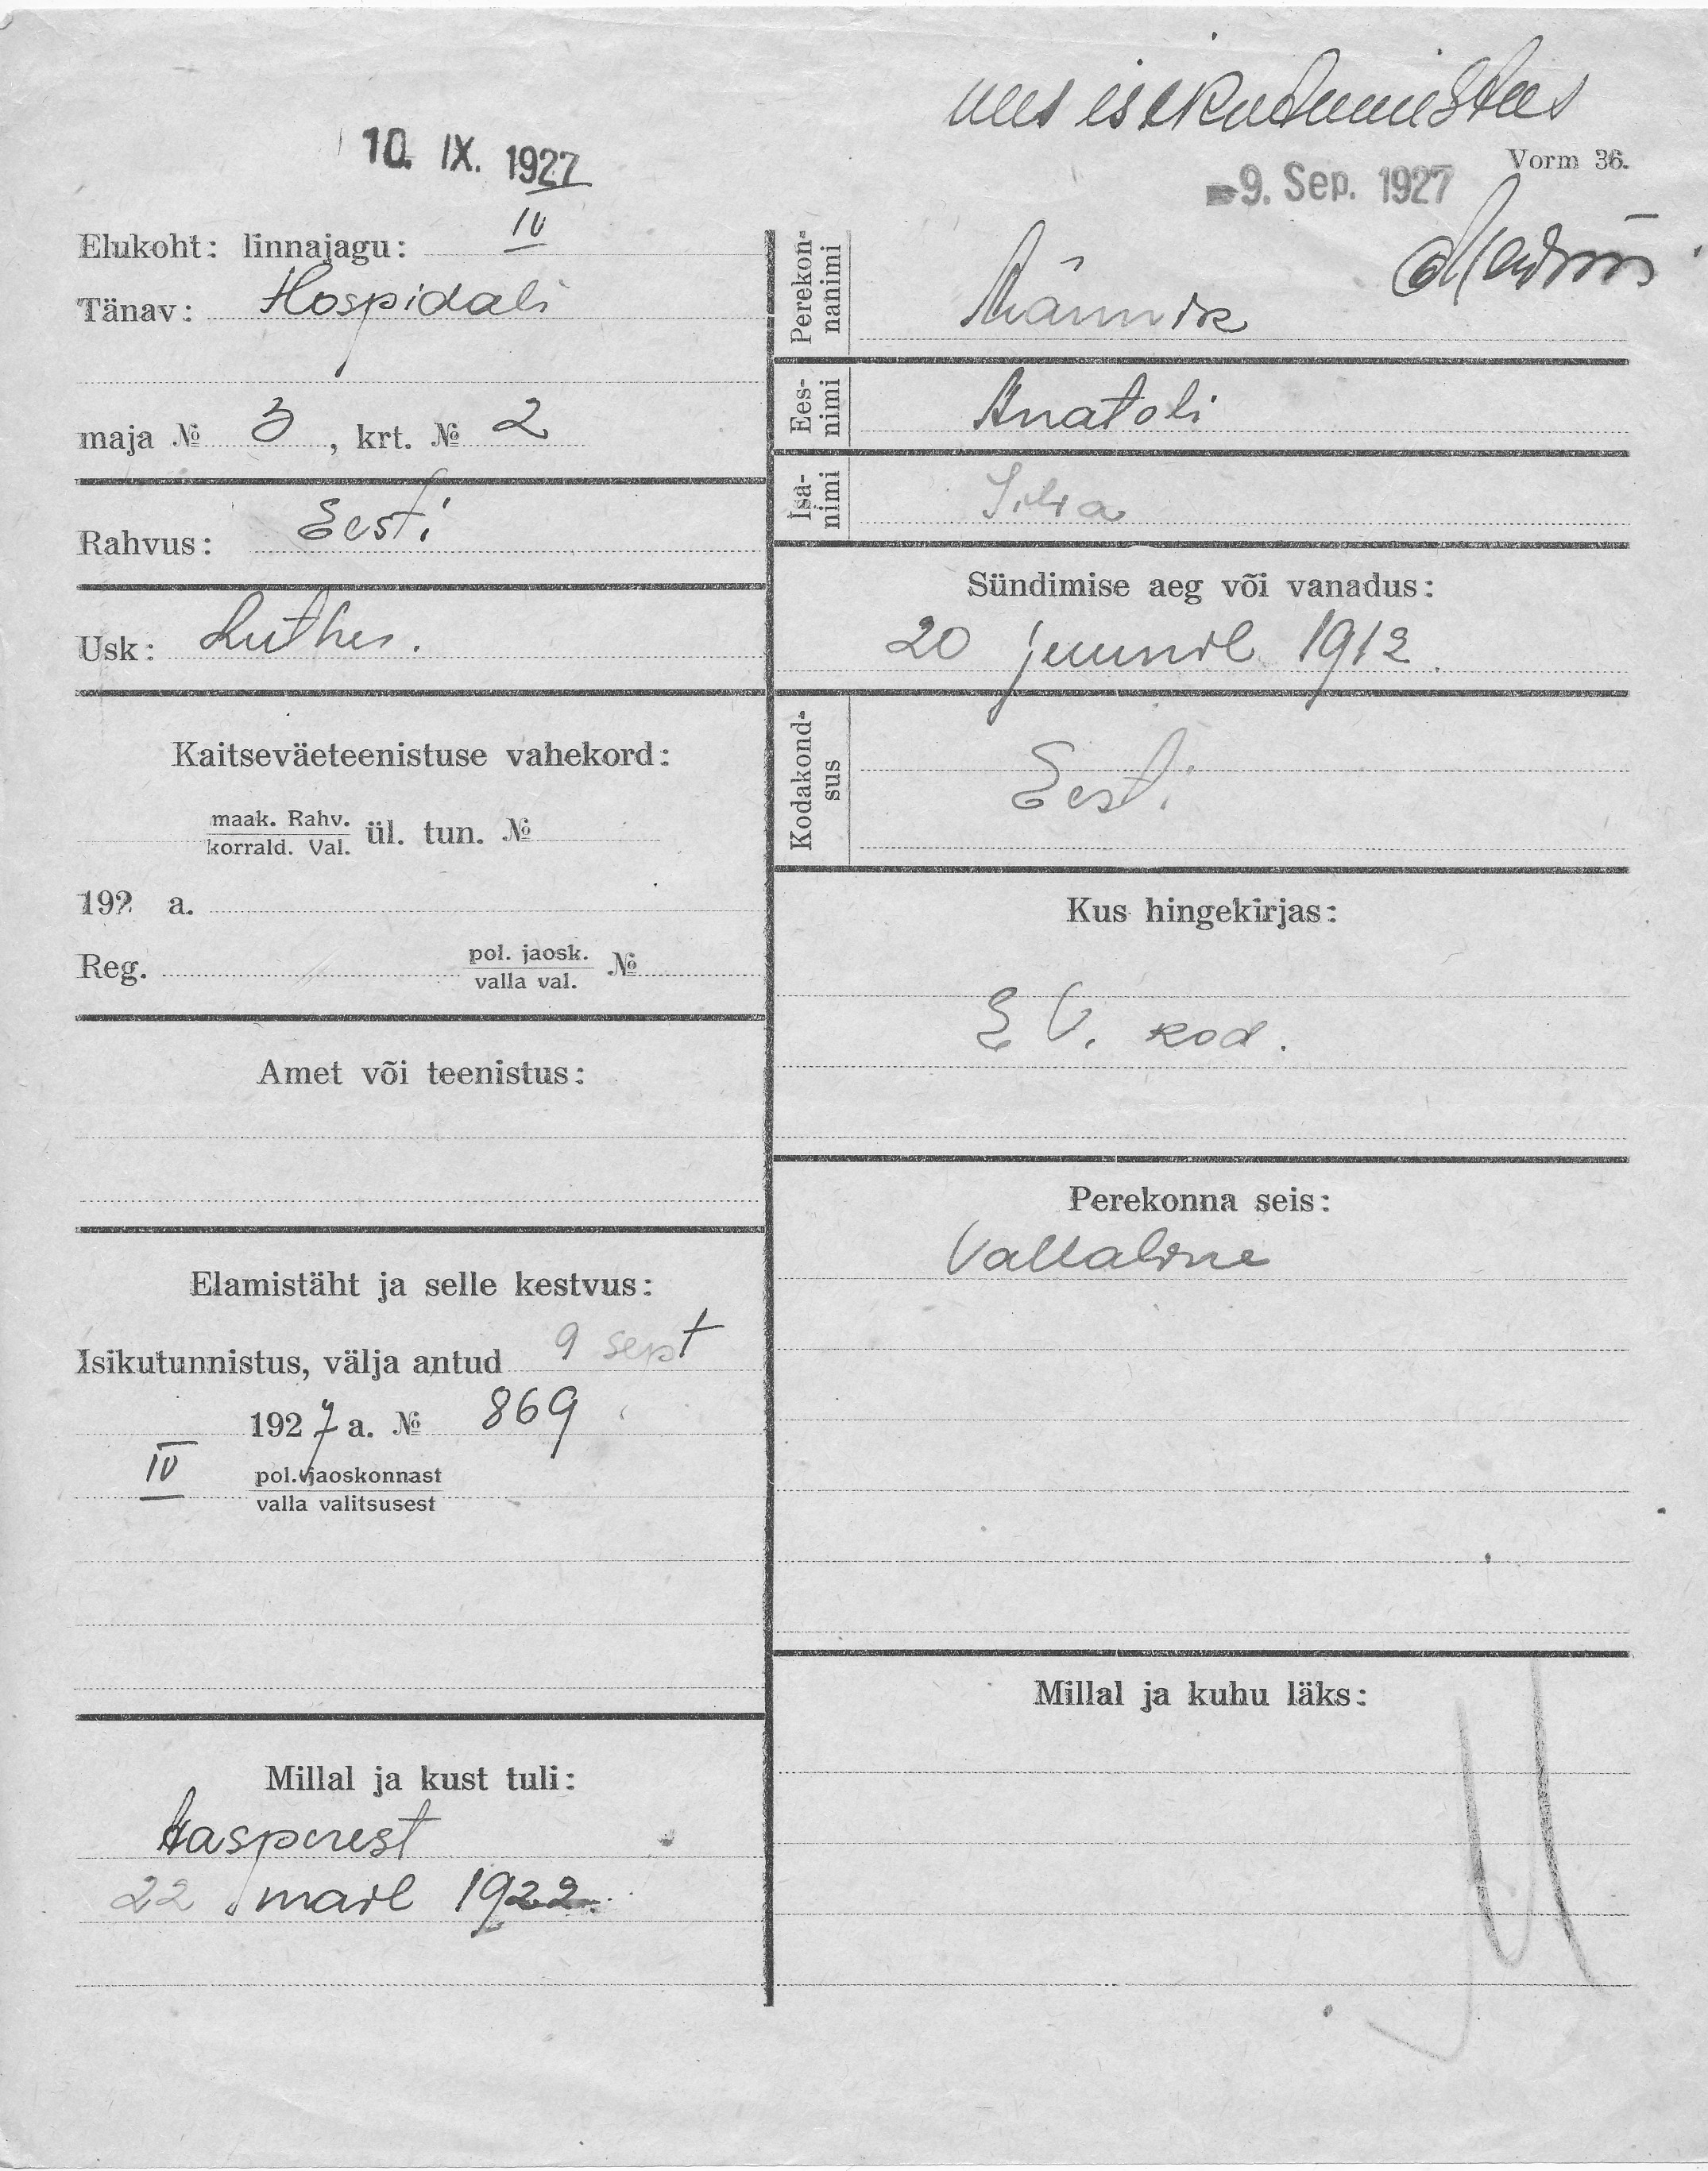 uus isikutunnistus
10. IX. 1927
Vorm 36.
9. Sep. 1927
Elukoht: linnajagu: IV
Tänav: Hospidali
maja № 3, krt. № 2
Rahvus: Eesti
Usk: Luther.
Kaitseväeteenistuse vahekord:
maak. Rahv.
korrald. Val. ül. tun. №
192 a.
Reg. pol. jaosk.
valla val. №
Amet või teenistus:
Elamistäht ja selle kestvus:
Isikutunnistus, välja antud 9 sept
1927 a. № 869
IV pol. jaoskonnast
valla valitsusest
Millal ja kust tuli:
22 mail 1922
Perekon-
nanimi Männik
Ees-
nimi Anatoli
Isa-
nimi
Sündimise aeg või vanadus:
20 juunil 1912.
Kodakond-
sus Eesti
Kus hingekirjas:
E V. kod.
Perekonna seis:
Vallaline
Millal ja kuhu läks: